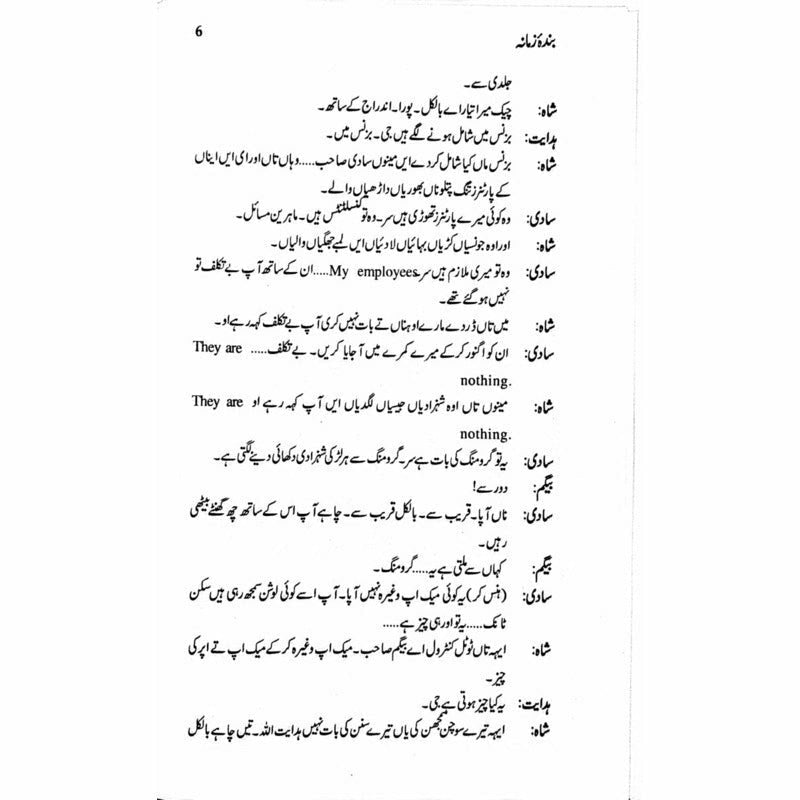 بندۂ زمانہ 6
جلدی سے۔
شاہ: چیک میرا تیار اے بالکل۔ پورا۔ اندراج کے ساتھ۔
ہدایت: بزنس میں شامل ہونے لگے ہیں جی۔ بزنس میں۔
شاہ: بزنس ماں کیا شامل کر دے ایں مینوں سادی صاحب..... وہاں تاں اورای ایں ایناں
کے پارٹنرز تنگ پتلوناں بھوریاں داڑھیاں والے۔
سادی: وہ کوئی میرے پارٹنرز تھوڑی ہیں سر۔ وہ تو کنسلٹنٹس ہیں۔ ماہرین مسائل۔
شاہ: اور اوہ جونسیاں کڑیاں بہائیاں لادئیاں ایں لمبے جھگیاں والیاں۔
سادی: وہ تو میری ملازم ہیں سر۔ My employees..... ان کے ساتھ آپ بے تکلف تو
نہیں ہو گئے تھے۔
شاہ: میں تاں ڈر دے مارے اوہناں تے بات نہیں کری آپ بے تکلف کہہ رہے او۔
سادی: ان کو اگنور کر کے میرے کمرے میں آ جایا کریں۔ بے تکلف..... They are
nothing.
شاہ: مینوں تاں اوہ شہزادیاں جیسیاں لگدیاں ایں آپ کہہ رہے او They are
nothing.
سادی: یہ تو گرومنگ کی بات ہے سر۔ گرومنگ سے ہر لڑکی شہزادی دکھائی دینے لگتی ہے۔
بیگم: دور سے!
سادی: ناں آپا۔ قریب سے۔ بالکل قریب سے۔ چاہے آپ اس کے ساتھ چھ گھنٹے بیٹھی
رہیں۔
بیگم: کہاں سے ملتی ہے یہ..... گرومنگ۔
سادی: (ہنس کر) یہ کوئی میک اپ وغیرہ نہیں آپا۔ آپ اسے کوئی لوشن سمجھ رہی ہیں سکن
ٹانک..... یہ تو اور ہی چیز ہے.....
شاہ: ایہہ تاں ٹوٹل کنٹرول اے بیگم صاحب۔ میک اپ وغیرہ کر کے میک اپ تے اپر کی
چیز۔
ہدایت: یہ کیا چیز ہوتی ہے جی۔
شاہ: ایہہ تیرے سوچن سمجھن کی یاں تیرے سنن کی بات نہیں ہدایت اللہ۔ تیں چاہے بالکل